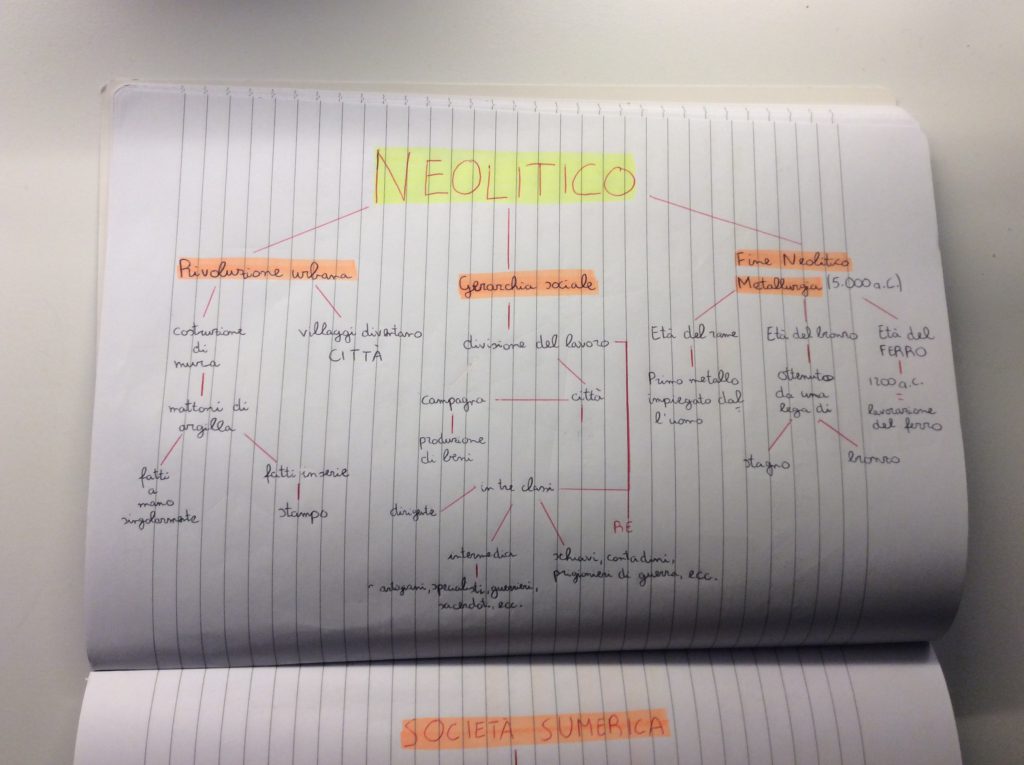 NEOLITICO
Rivoluzione urbana
costruzione
di
mura
mattoni di
argilla
fatti
a
mano
singolarmente
fatti in serie
stampo
villaggi diventano
CITTÀ
Gerarchia sociale
divisione del lavoro
campagna
città
produzione
di beni
in tre classi
RE
dirigente
intermedia
artigiani, specialisti, guerrieri,
sacerdoti, ecc.
schiavi, contadini,
prigionieri di guerra, ecc.
Fine Neolitico
Metallurgia (5.000 a.C.)
Età del rame
Primo metallo
impiegato dal
l'uomo
Età del bronzo
ottenuto
da una
lega di
stagno
bronzo
Età del
FERRO
1200 a.C.
=
lavorazione
del ferro
SOCIETÀ SUMERICA